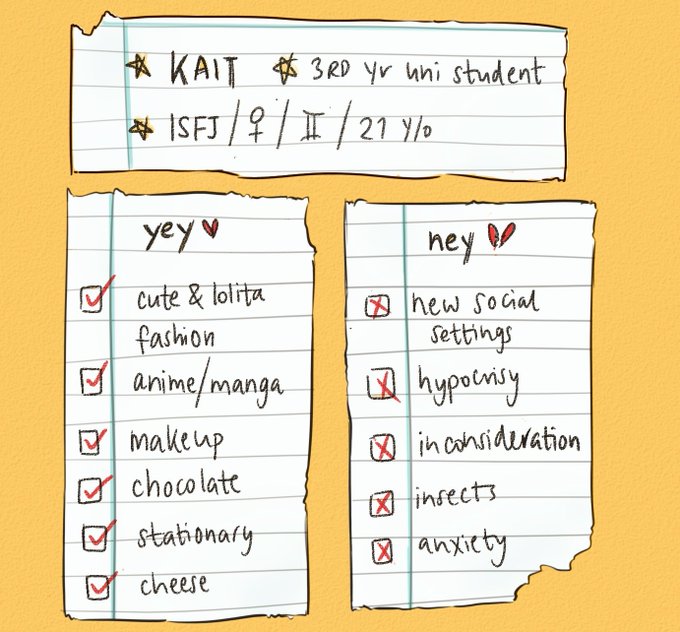 KAIT 3RD yr uni student
ISFJ / ♀ / II / 21 y/o
yey
cute & lolita
fashion
anime/manga
makeup
chocolate
stationary
cheese
ney
new social
settings
hypocrisy
inconsideration
insects
anxiety